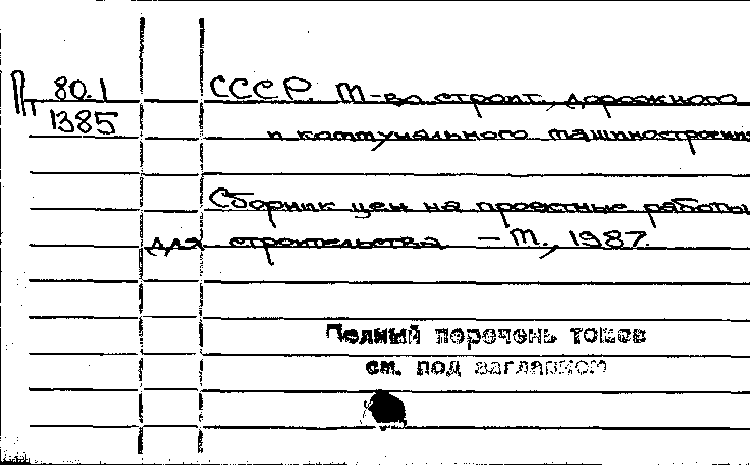 Пт 80.1
1385
СССР. М-во строит., дорожного
и коммунального машиностроения
Сборник цен на проектные работы
для строительства. – М., 1987.
Полный перечень томов
см. под заглавием